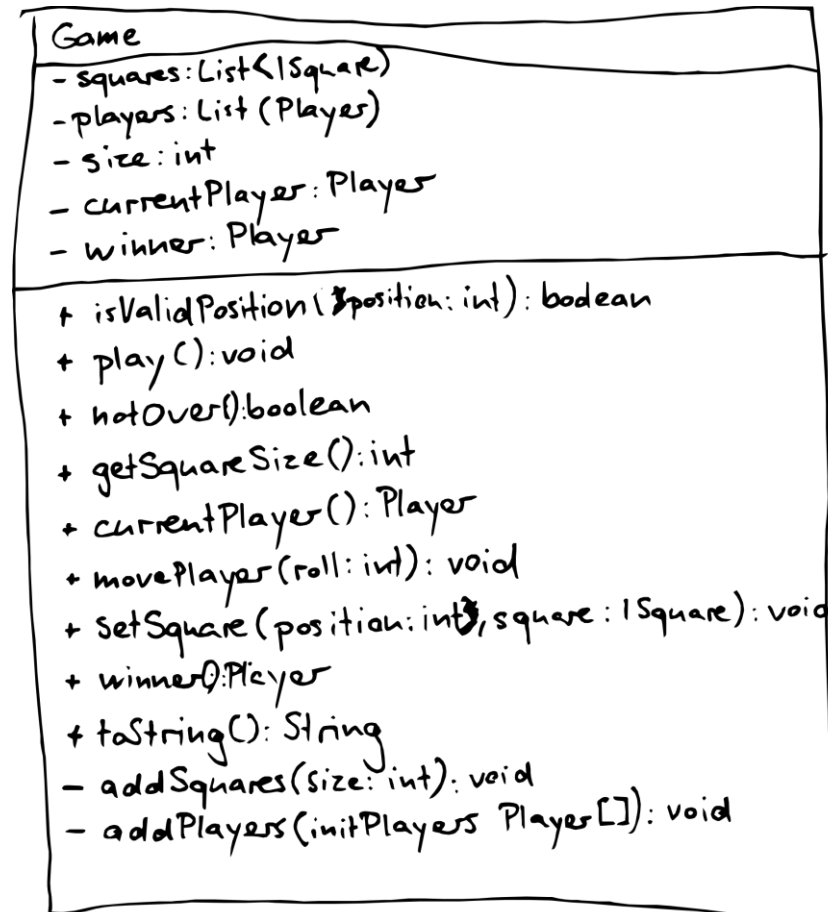 Game
- squares: List<ISquare)
- players: List (Player)
- size: int
- currentPlayer: Player
- winner: Player
+ isValidPosition (position: int): boolean
+ play(): void
+ notOver(): boolean
+ getSquareSize(): int
+ currentPlayer(): Player
+ movePlayer(roll: int): void
+ setSquare(position: int, square: ISquare): void
+ winner(): Player
+ toString(): String
- addSquares(size: int): void
- addPlayers(initPlayers Player[]): void